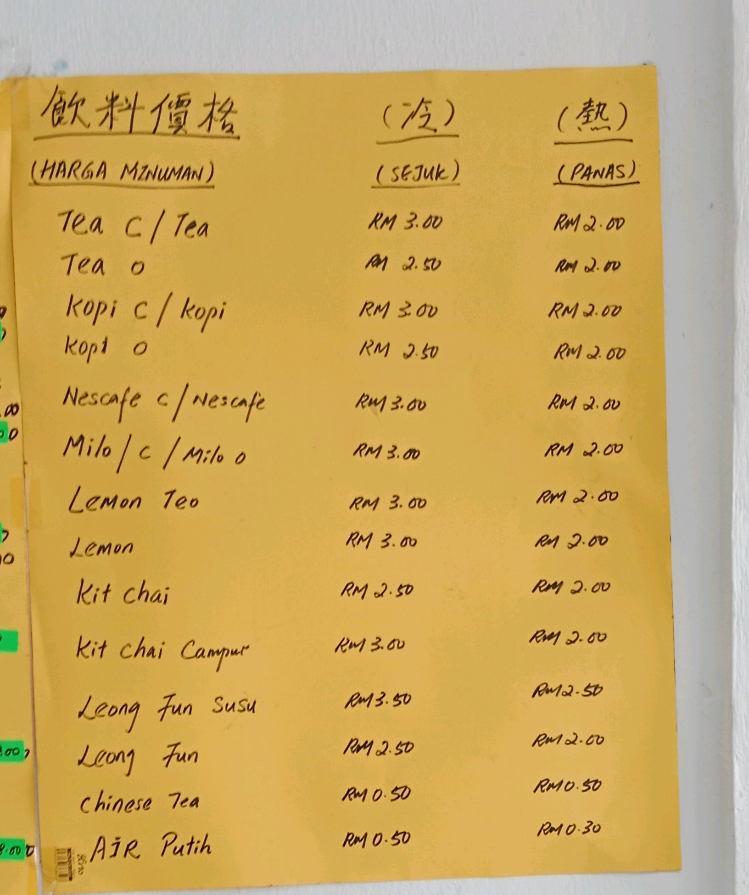 飲料價格 (冷) (熱)
(HARGA MINUMAN) (SEJUK) (PANAS)
Tea C / Tea RM 3.00 RM 2.00
Tea O RM 2.50 RM 2.00
Kopi C / Kopi RM 3.00 RM 2.00
Kopi O RM 2.50 RM 2.00
Nescafe C / Nescafe RM 3.00 RM 2.00
Milo / C / Milo O RM 3.00 RM 2.00
Lemon Teo RM 3.00 RM 2.00
Lemon RM 3.00 RM 2.00
Kit Chai RM 2.50 RM 2.00
Kit Chai Campur RM 3.00 RM 2.00
Leong Fun Susu RM 3.50 RM 2.50
Leong Fun RM 2.50 RM 2.00
Chinese Tea RM 0.50 RM 0.50
AIR Putih RM 0.50 RM 0.30